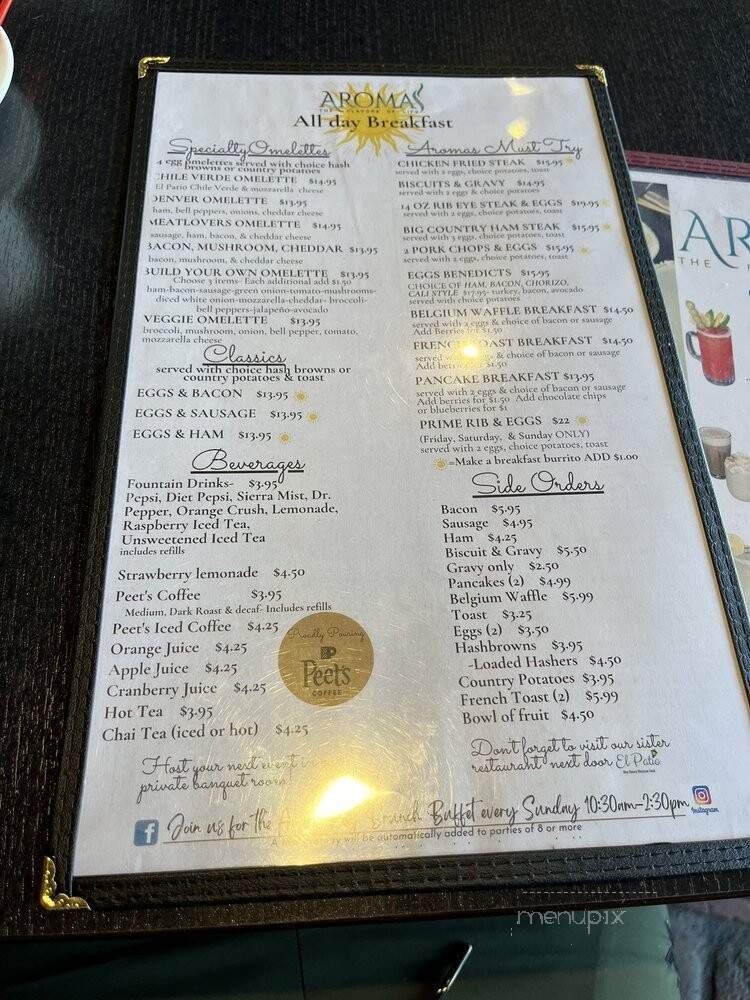 AROMAS
THE FLAVORS OF LIFE
All day Breakfast
Specialty Omelettes
4 egg omelettes served with choice hash
browns or country potatoes
CHILE VERDE OMELETTE $14.95
El Patio Chile Verde & mozzarella cheese
DENVER OMELETTE $13.95
ham, bell peppers, onions, cheddar cheese
MEATLOVERS OMELETTE $14.95
sausage, ham, bacon, & cheddar cheese
BACON, MUSHROOM, CHEDDAR $13.95
bacon, mushroom, & cheddar cheese
BUILD YOUR OWN OMELETTE $13.95
Choose 3 items- Each additional add $1.50
ham-bacon-sausage-green onion-tomato-mushrooms-
diced white onion-mozzarella-cheddar- broccoli-
bell peppers-jalapeño-avocado
VEGGIE OMELETTE $13.95
broccoli, mushroom, onion, bell pepper, tomato,
mozzarella cheese
Classics
served with choice hash browns or
country potatoes & toast
EGGS & BACON $13.95
EGGS & SAUSAGE $13.95
EGGS & HAM $13.95
Beverages
Fountain Drinks- $3.95
Pepsi, Diet Pepsi, Sierra Mist, Dr.
Pepper, Orange Crush, Lemonade,
Raspberry Iced Tea,
Unsweetened Iced Tea
includes refills
Strawberry lemonade $4.50
Peet's Coffee $3.95
Medium, Dark Roast & decaf- Includes refills
Peet's Iced Coffee $4.25
Orange Juice $4.25
Apple Juice $4.25
Cranberry Juice $4.25
Hot Tea $3.95
Chai Tea (iced or hot) $4.25
Proudly Pouring
Peet's
COFFEE
Host your next event
private banquet room!
Aromas Must Try
CHICKEN FRIED STEAK $15.95
served with 2 eggs, choice potatoes, toast
BISCUITS & GRAVY $14.95
served with 2 eggs & choice potatoes
14 OZ RIB EYE STEAK & EGGS $19.95
served with 2 eggs, choice potatoes, toast
BIG COUNTRY HAM STEAK $15.95
served with 3 eggs, choice potatoes, toast
2 PORK CHOPS & EGGS $15.95
served with 2 eggs, choice potatoes, toast
EGGS BENEDICTS $15.95
CHOICE OF HAM, BACON, CHORIZO,
CALI STYLE $17.95- turkey, bacon, avocado
served with choice potatoes
BELGIUM WAFFLE BREAKFAST $14.50
served with 2 eggs & choice of bacon or sausage
Add Berries for $1.50
FRENCH TOAST BREAKFAST $14.50
served eggs & choice of bacon or sausage
Add $1.50
PANCAKE BREAKFAST $13.95
served with 2 eggs & choice of bacon or sausage
Add berries for $1.50 Add chocolate chips
or blueberries for $1
PRIME RIB & EGGS $22
(Friday, Saturday, & Sunday ONLY)
served with 2 eggs, choice potatoes, toast
=Make a breakfast burrito ADD $1.00
Side Orders
Bacon $5.95
Sausage $4.95
Ham $4.25
Biscuit & Gravy $5.50
Gravy only $2.50
Pancakes (2) $4.99
Belgium Waffle $5.99
Toast $3.25
Eggs (2) $3.50
Hashbrowns $3.95
-Loaded Hashers $4.50
Country Potatoes $3.95
French Toast (2) $5.99
Bowl of fruit $4.50
Don't forget to visit our sister
restaurant next door El Patio
Join us for the Brunch Buffet every Sunday 10:30am-2:30pm
Instagram
will be automatically added to parties of 8 or more
AR
THE
menupix